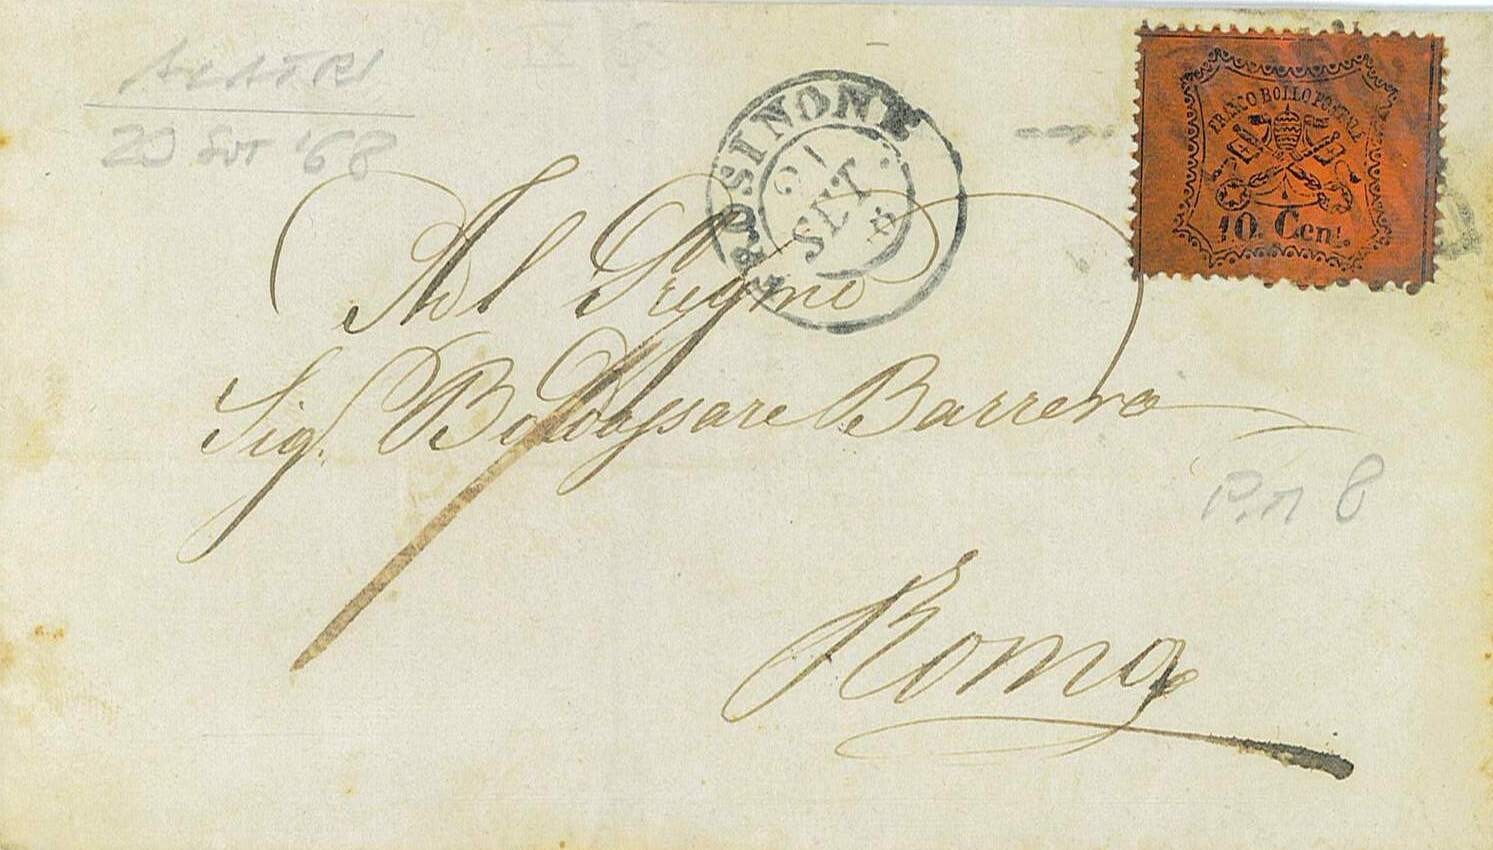 ALATRI
20 Set '68
FROSINONE
21
SET
FRANCO BOLLO POSTALE
10. Cent.
Al Pregmo
Sig. Baldassare Barrera
8
Roma